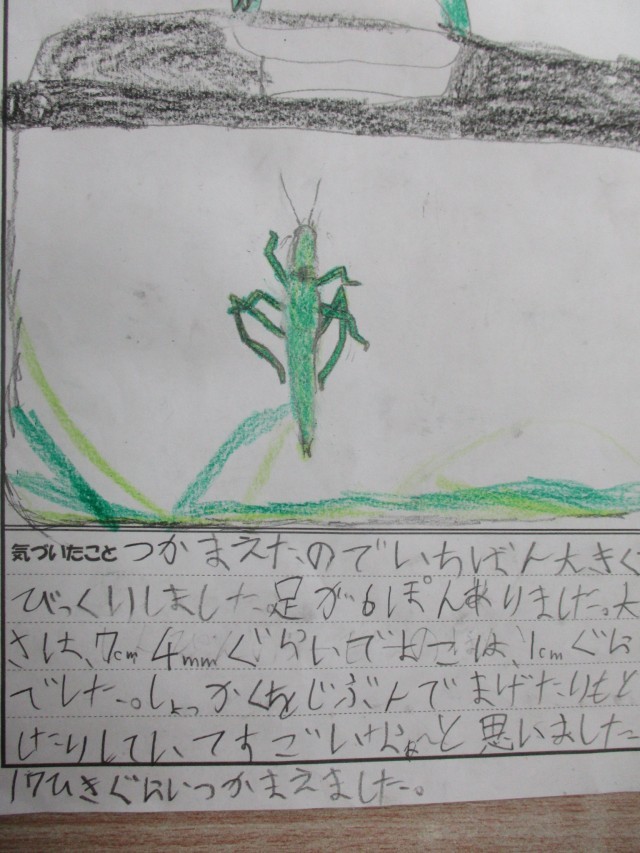 気づいたこと つかまえたのでいちばん大きく
びっくりしました。足が6ぽんありました。大
さは、7cm 4mmぐらいでよこは、1cmぐら
でした。しょっかくをじぶんでまげたりもど
したりしていてすごいなぁ〜と思いました
17ひきぐらいつかまえました。